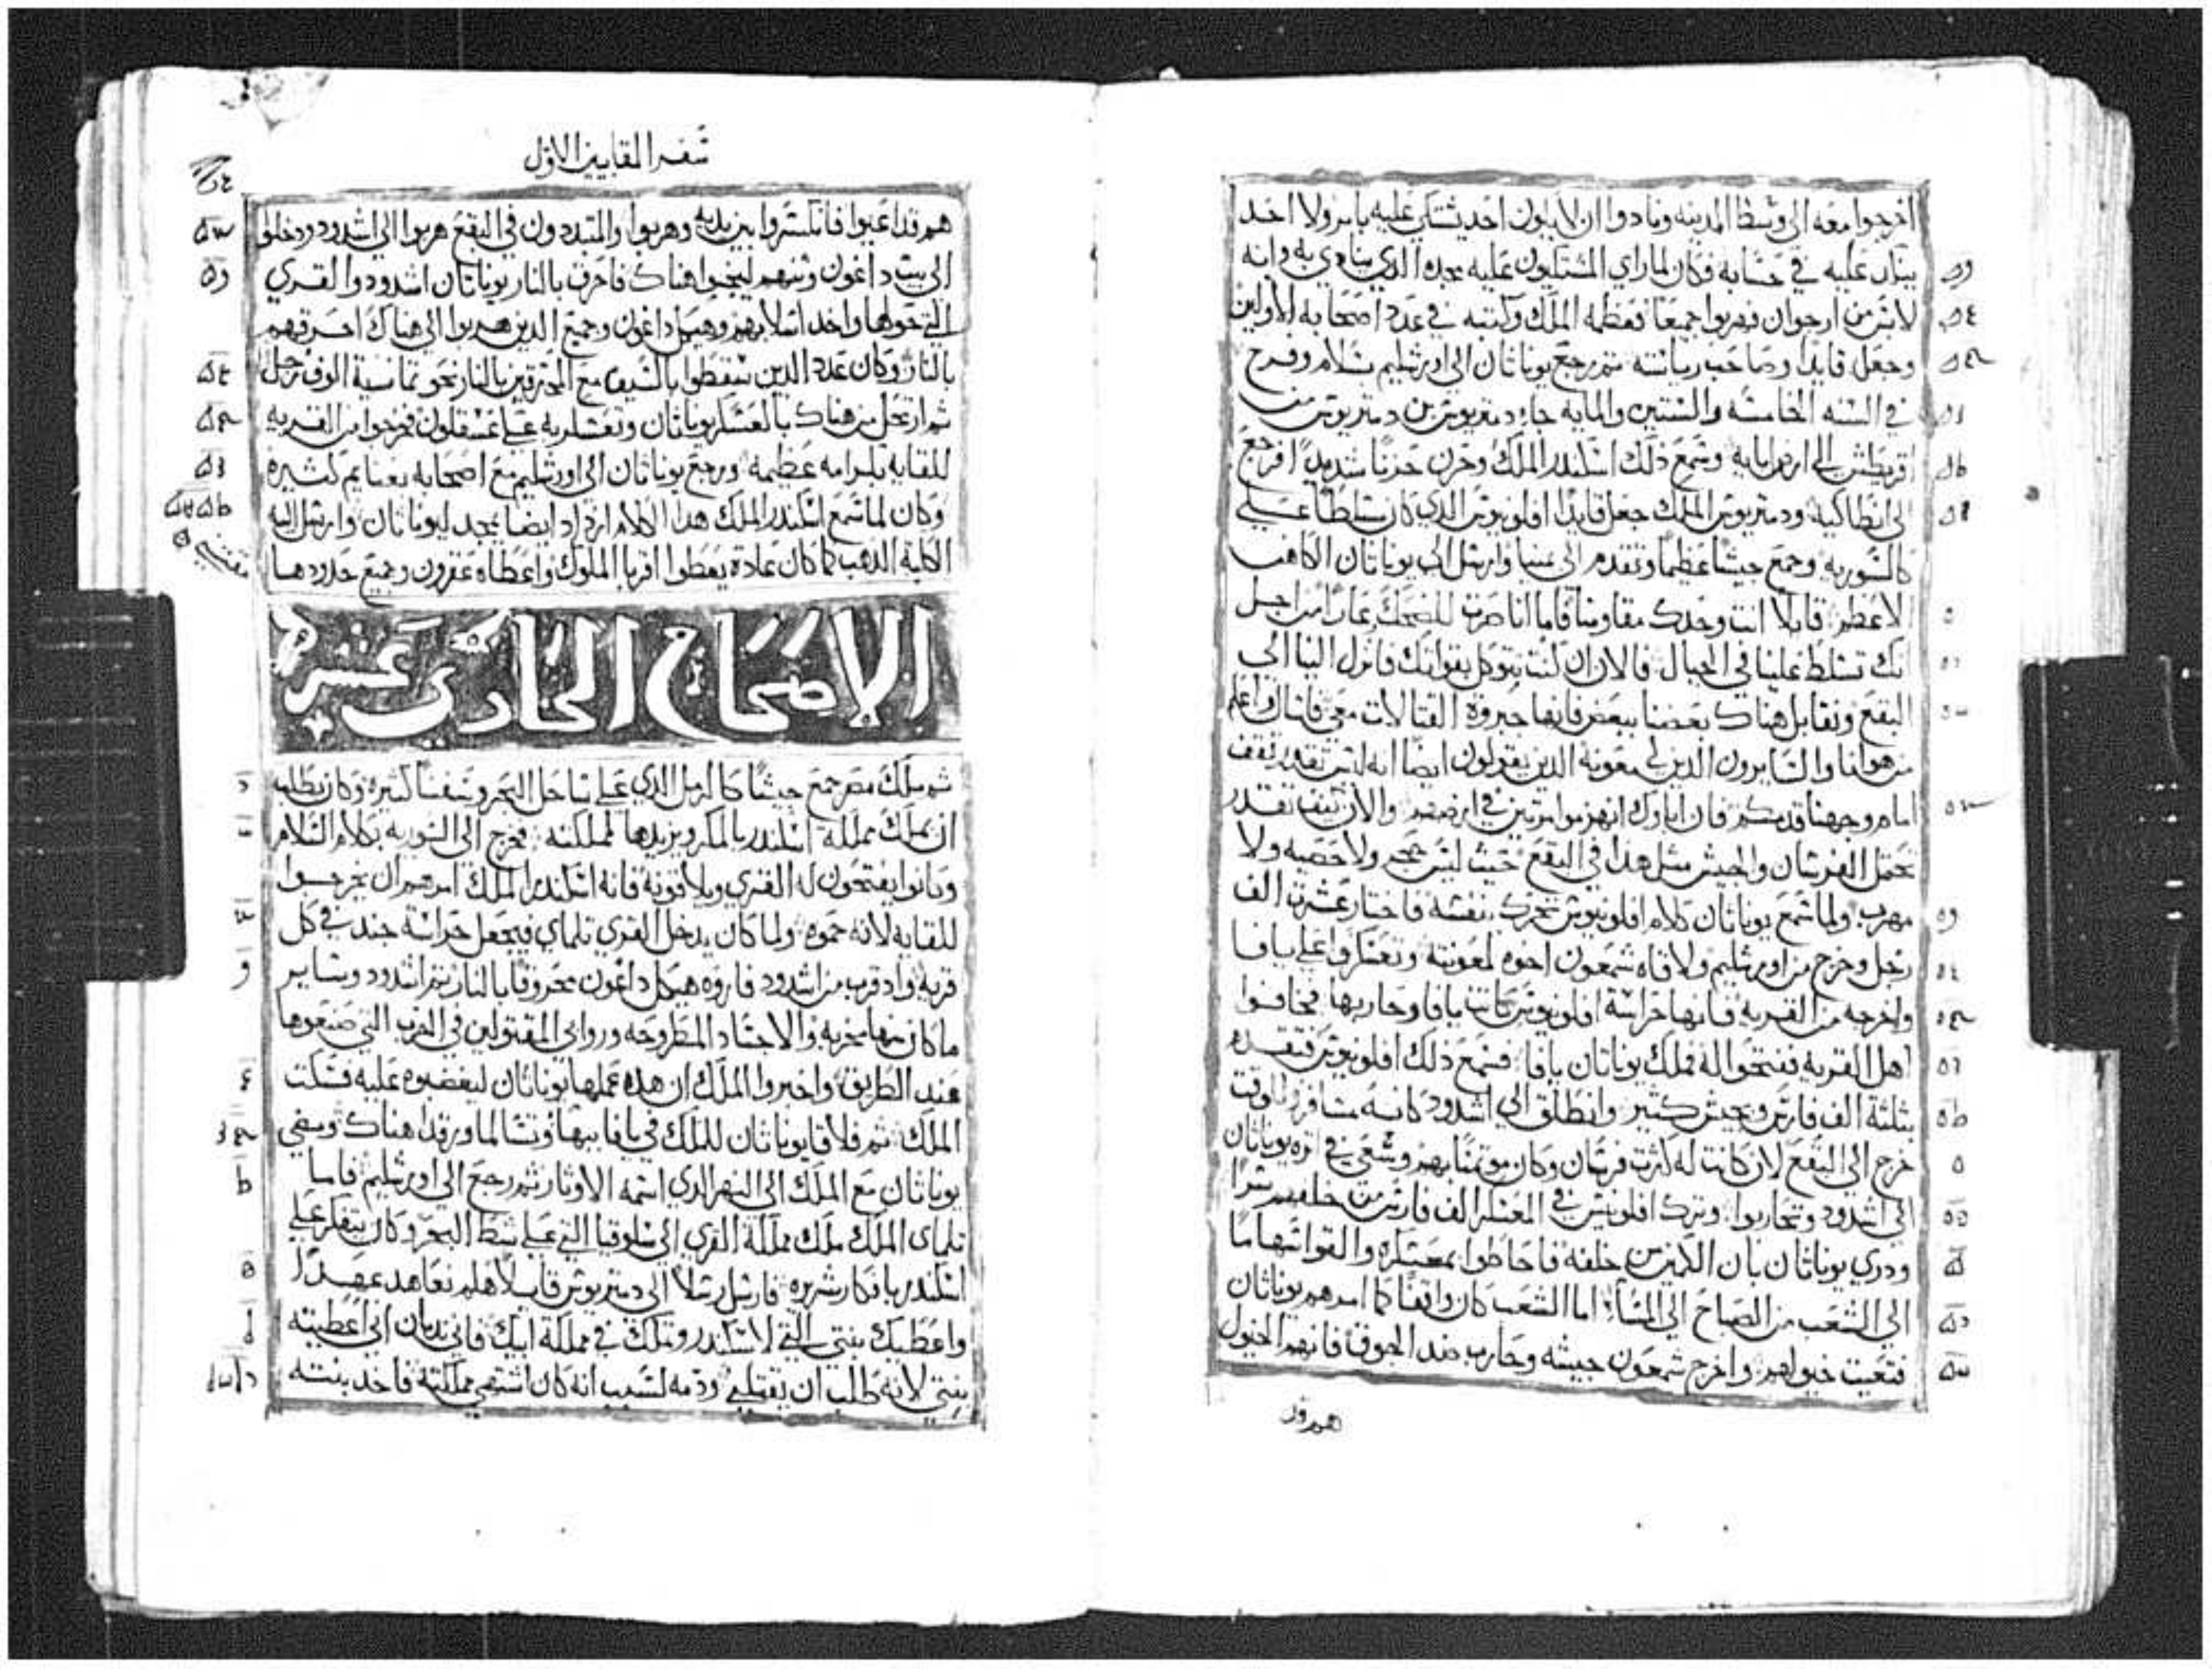 اخرجوا معه الي وسط المدينه ونادوا ان لا يكون احد يشتكي عليه بامر ولا احد
عليه في حسابه فكان لما راي المشتكيون عليه مجده الذي ينادي به وانه
لابس من ارجوان فهربوا جميعا فعظمه الملك وكتبه في عدد اصحابه الاولين
وجعله قايدا وصاحب رياسته ثم رجع يوناثان الي اورشليم بسلام وفرح
في السنه الخامسه والستين والمايه جاء دمتريوس بن دمتريوس من
اقريطش الي ارض ابايه وسمع ذلك اسكندر الملك وحزن حزنا شديدا فرجع
الي انطاكيه ودمتريوس الملك جعل قايدا افلونيوس الذي كان متسلطا علي
كالسوريه وجمع جيشا عظيما وتقدم الي يمنيا وارسل الي يوناثان الكاهن
الاعظم قايلا انت وحدك مقاومنا فاما انا صرت للضحك عارا من اجل
انك تسلط علينا في الجبال فالان ان كنت تتوكل بقواتك فانزل الينا الي
البقع ونقابل هناك بعضنا ببعض فانها جبروة القتالات معي فاسال واعلم
من هو انا والسايرون الذين لي معونه الذين يقولون ايضا انه ليس تقدر تقف
امام وجهنا قدمكم فان اباوك انهزموا مرتين في ارضهم والان كيف تقدر
تحتمل الفرسان والجيش مثل هذا في البقع حيث ليس حجر ولا حصيه ولا
مهرب ولما سمع يوناثان كلام افلونيوس تحرك بنفسه فاختار عشرت الف
رجل وخرج من اورشليم ولاقاه شمعون اخوه لمعونته وتعسكروا علي يافا
واخرجه من القريه فانها حراسة افلونيوس كانت يافا وحاربها فخافوا
اهل القريه ففتحوا له فملك يوناثان يافا فسمع ذلك افلونيوس فتقدم
بثلثة الف فارس وجيش كثير وانطلق الي اشدود كانه مسافر وللوقت
خرج الي البقع لان كانت له كثرت فرسان وكان موتمنا بهم وسعي في اثره يوناثان
الي اشدود وتحاربوا وترك افلونيوس في المعسكر الف فارس من خلفهم سرا
ودري يوناثان بان الكمين من خلفه فاحاطوا بمعسكره والقوا سهاما
الي الشعب من الصباح الي المساء اما الشعب كان واقفا كما امرهم يوناثان
فتعبت خيولهم واخرج شمعون جيشه وحارب ضد الجوق فانهم الخيول
هم قد
سفر المقابيين الاول
هم قد اعيوا فانكسروا بين يديه وهربوا والمتبددون في البقع هربوا الي اشدود ودخلوا
الي بيت داغون وثنهم لينجوا هناك فاحرق بالنار يوناثان اشدود والقري
التي حولها واخد اسلابهم وهيكل داغون وجميع الذين هربوا الي هناك احرقهم
بالنار وكان عدد الذين سقطوا بالسيف مع المحترقين بالنار نحو ثمانية الوف رجل
ثم ارتحل من هناك بالعسكر يوناثان وتعسكر به علي عسقلون فخرجوا من القريه
للقايه بكرامه عظيمه ورجع يوناثان الي اورشليم مع اصحابه بغنايم كثيره
وكان لما سمع اسكندر الملك هذا الكلام ازداد ايضا بمجد ليوناثان وارسل اليه
الكلبة الدهب كما كان عادة يعطوا اقربا الملوك واعطاه عقرون وجميع حدودها
مقتني
الاصحاح الحادي عشر
ثم ملك مصر جمع جيشا كالرمل الذي علي ساحل البحر وسفنا كثيره وكان يطلب
ان يملك مملكة اسكندر بالمكر ويزيدها لمملكته فخرج الي السوريه بكلام السلام
وكانوا يفتحون له القري ويلاقونه فانه اسكندر الملك امرهم ان يخرجوا
للقايه لانه حموه ولما كان يدخل القري تلماي فيجعل حراسة جند في كل
قريه واد قرب من اشدود فاروه هيكل داغون محروقا بالنار ثم اشدود وساير
ما كان منها مخربه والاجساد المطروحه وروابي المقتولين في الحرب التي صنعوها
عند الطريق واخبروا الملك ان هذه عملها يوناثان ليغضبوه عليه فسكت
الملك ثم فلاقا يوناثان للملك في يافا ببهاء وتسالما ورقدا هناك ومضي
يوناثان مع الملك الي النهر الذي اسمه الاوثار ثم رجع الي اورشليم فاما
تلماي الملك ملك مملكة القري الي سلوقيا التي علي شط البحر وكان يتفكر علي
اسكندر بافكار شريره فارسل رسلا الي دمتريوس قايلا هلم نعاهد عهدا
واعطيك بنتي التي لاسكندر وتملك في مملكة ابيك فاني ندمان اني اعطيته
بنتي لانه طلب ان يقتلني ودمه لسبب انه كان اشتهي مملكته فاخد بنته